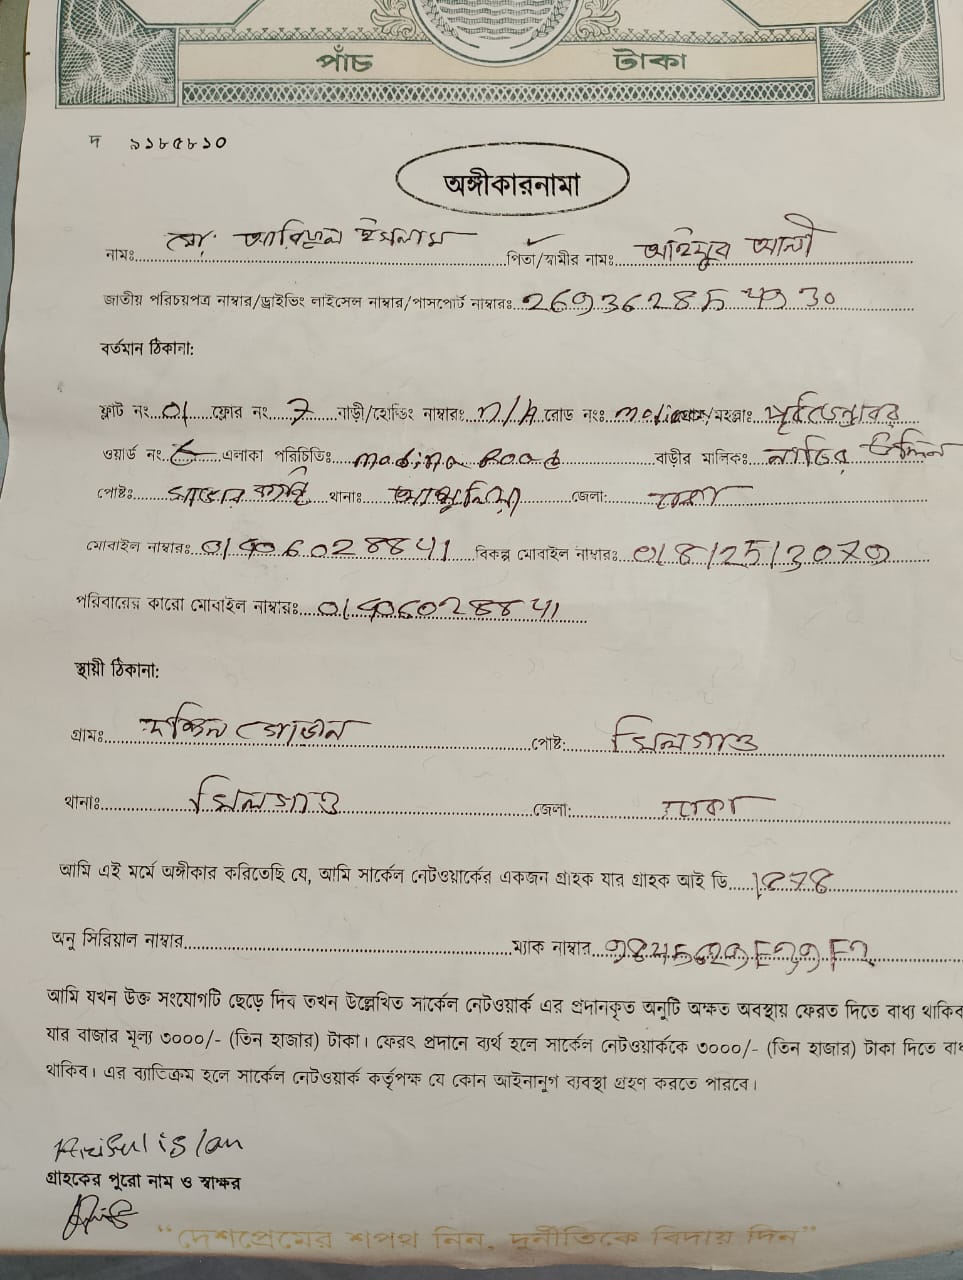 পাঁচ টাকা
দ ৯১৮৫৮১০
অঙ্গীকারনামা
নামঃ মো: আরিফুল ইসলাম পিতা/স্বামীর নামঃ আলী
জাতীয় পরিচয়পত্র নাম্বার/ড্রাইভিং লাইসেন্স নাম্বার/পাসপোর্ট নাম্বারঃ
বর্তমান ঠিকানা:
ফ্লাট নং 01 ফ্লোর নং 7 বাড়ী/হোল্ডিং নাম্বারঃ n/A রোড নংঃ /মহল্লাঃ
ওয়ার্ড নং এলাকা পরিচিতিঃ madina Road বাড়ীর মালিক: উদ্দিন
পোষ্টঃ থানাঃ আশুলিয়া জেলা: ঢাকা
মোবাইল নাম্বারঃ 01406028841 বিকল্প মোবাইল নাম্বারঃ
পরিবারের কারো মোবাইল নাম্বারঃ 01406028841
স্থায়ী ঠিকানা:
গ্রামঃ দক্ষিন গোড়ান পোষ্ট: খিলগাও
থানাঃ খিলগাও জেলা: ঢাকা
আমি এই মর্মে অঙ্গীকার করিতেছি যে, আমি সার্কেল নেটওয়ার্কের একজন গ্রাহক যার গ্রাহক আই ডি 1878
অনু সিরিয়াল নাম্বার ম্যাক নাম্বার
আমি যখন উক্ত সংযোগটি ছেড়ে দিব তখন উল্লেখিত সার্কেল নেটওয়ার্ক এর প্রদানকৃত অনুটি অক্ষত অবস্থায় ফেরত দিতে বাধ্য থাকিব
যার বাজার মূল্য ৩০০০/- (তিন হাজার) টাকা। ফেরৎ প্রদানে ব্যর্থ হলে সার্কেল নেটওয়ার্ককে ৩০০০/- (তিন হাজার) টাকা দিতে
থাকিব। এর ব্যাতিক্রম হলে সার্কেল নেটওয়ার্ক কর্তৃপক্ষ যে কোন আইনানুগ ব্যবস্থা গ্রহণ করতে পারবে।
Arisul islam
গ্রাহকের পুরো নাম ও স্বাক্ষর
"দেশপ্রেমের শপথ নিন, দুর্নীতিকে বিদায় দিন"